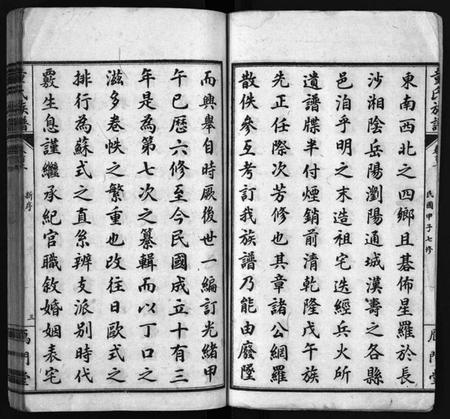 東南西北之四鄉且碁佈星羅於長
沙湘陰岳陽瀏陽通城漢壽之各縣
邑洎乎明之末造祖宅迭經兵火所
遺譜牒半付煙銷前清乾隆戊午族
先正任際次芳修也其章諸公網羅
散佚參互考訂我族譜乃能由廢墜
而興舉自時厥後世一編訂光緒甲
午已歷六修至今民國成立十有三
年是為第七次之纂輯而以丁口之
滋多卷帙之繁重也改往日歐式之
排行為蘇式之直系辨支派別時代
覈生息謹繼承紀官職敘婚姻表宅
民國甲子七修
新序
三